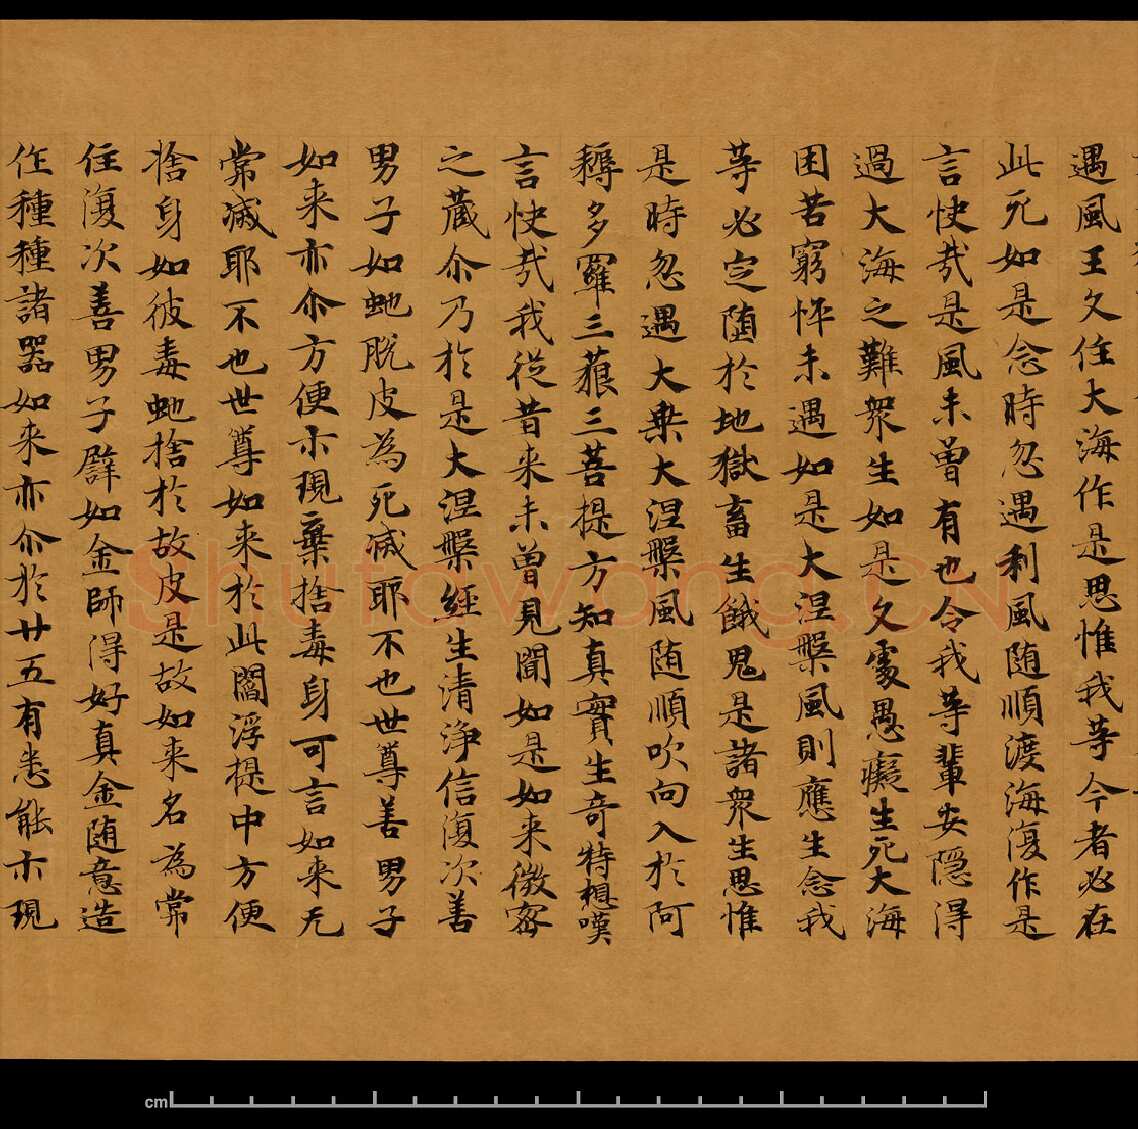 遇風王久住大海作是思惟我等今者必在
此死如是念時忽遇利風随順渡海復作是
言快哉是風未曾有也令我等輩安隠得
過大海之難衆生如是久處愚癡生死大海
困苦窮悴未遇如是大涅槃風則應生念我
等必定随於地獄畜生餓鬼是諸衆生思惟
是時忽遇大乗大涅槃風随順吹向入於阿
耨多羅三藐三菩提方知真實生奇特想嘆
言快哉我從昔来未曾見聞如是如来微密
之蔵尒乃於是大涅槃經生清浄信復次善
男子如虵脱皮為死滅耶不也世尊善男子
如来亦尒方便示現棄捨毒身可言如来无
常滅耶不也世尊如来於此閻浮提中方便
捨身如彼毒虵捨於故皮是故如来名為常
住復次善男子譬如金師得好真金随意造
作種種諸器如来亦尒於廿五有悉能示現
Shufawang.CN
cm